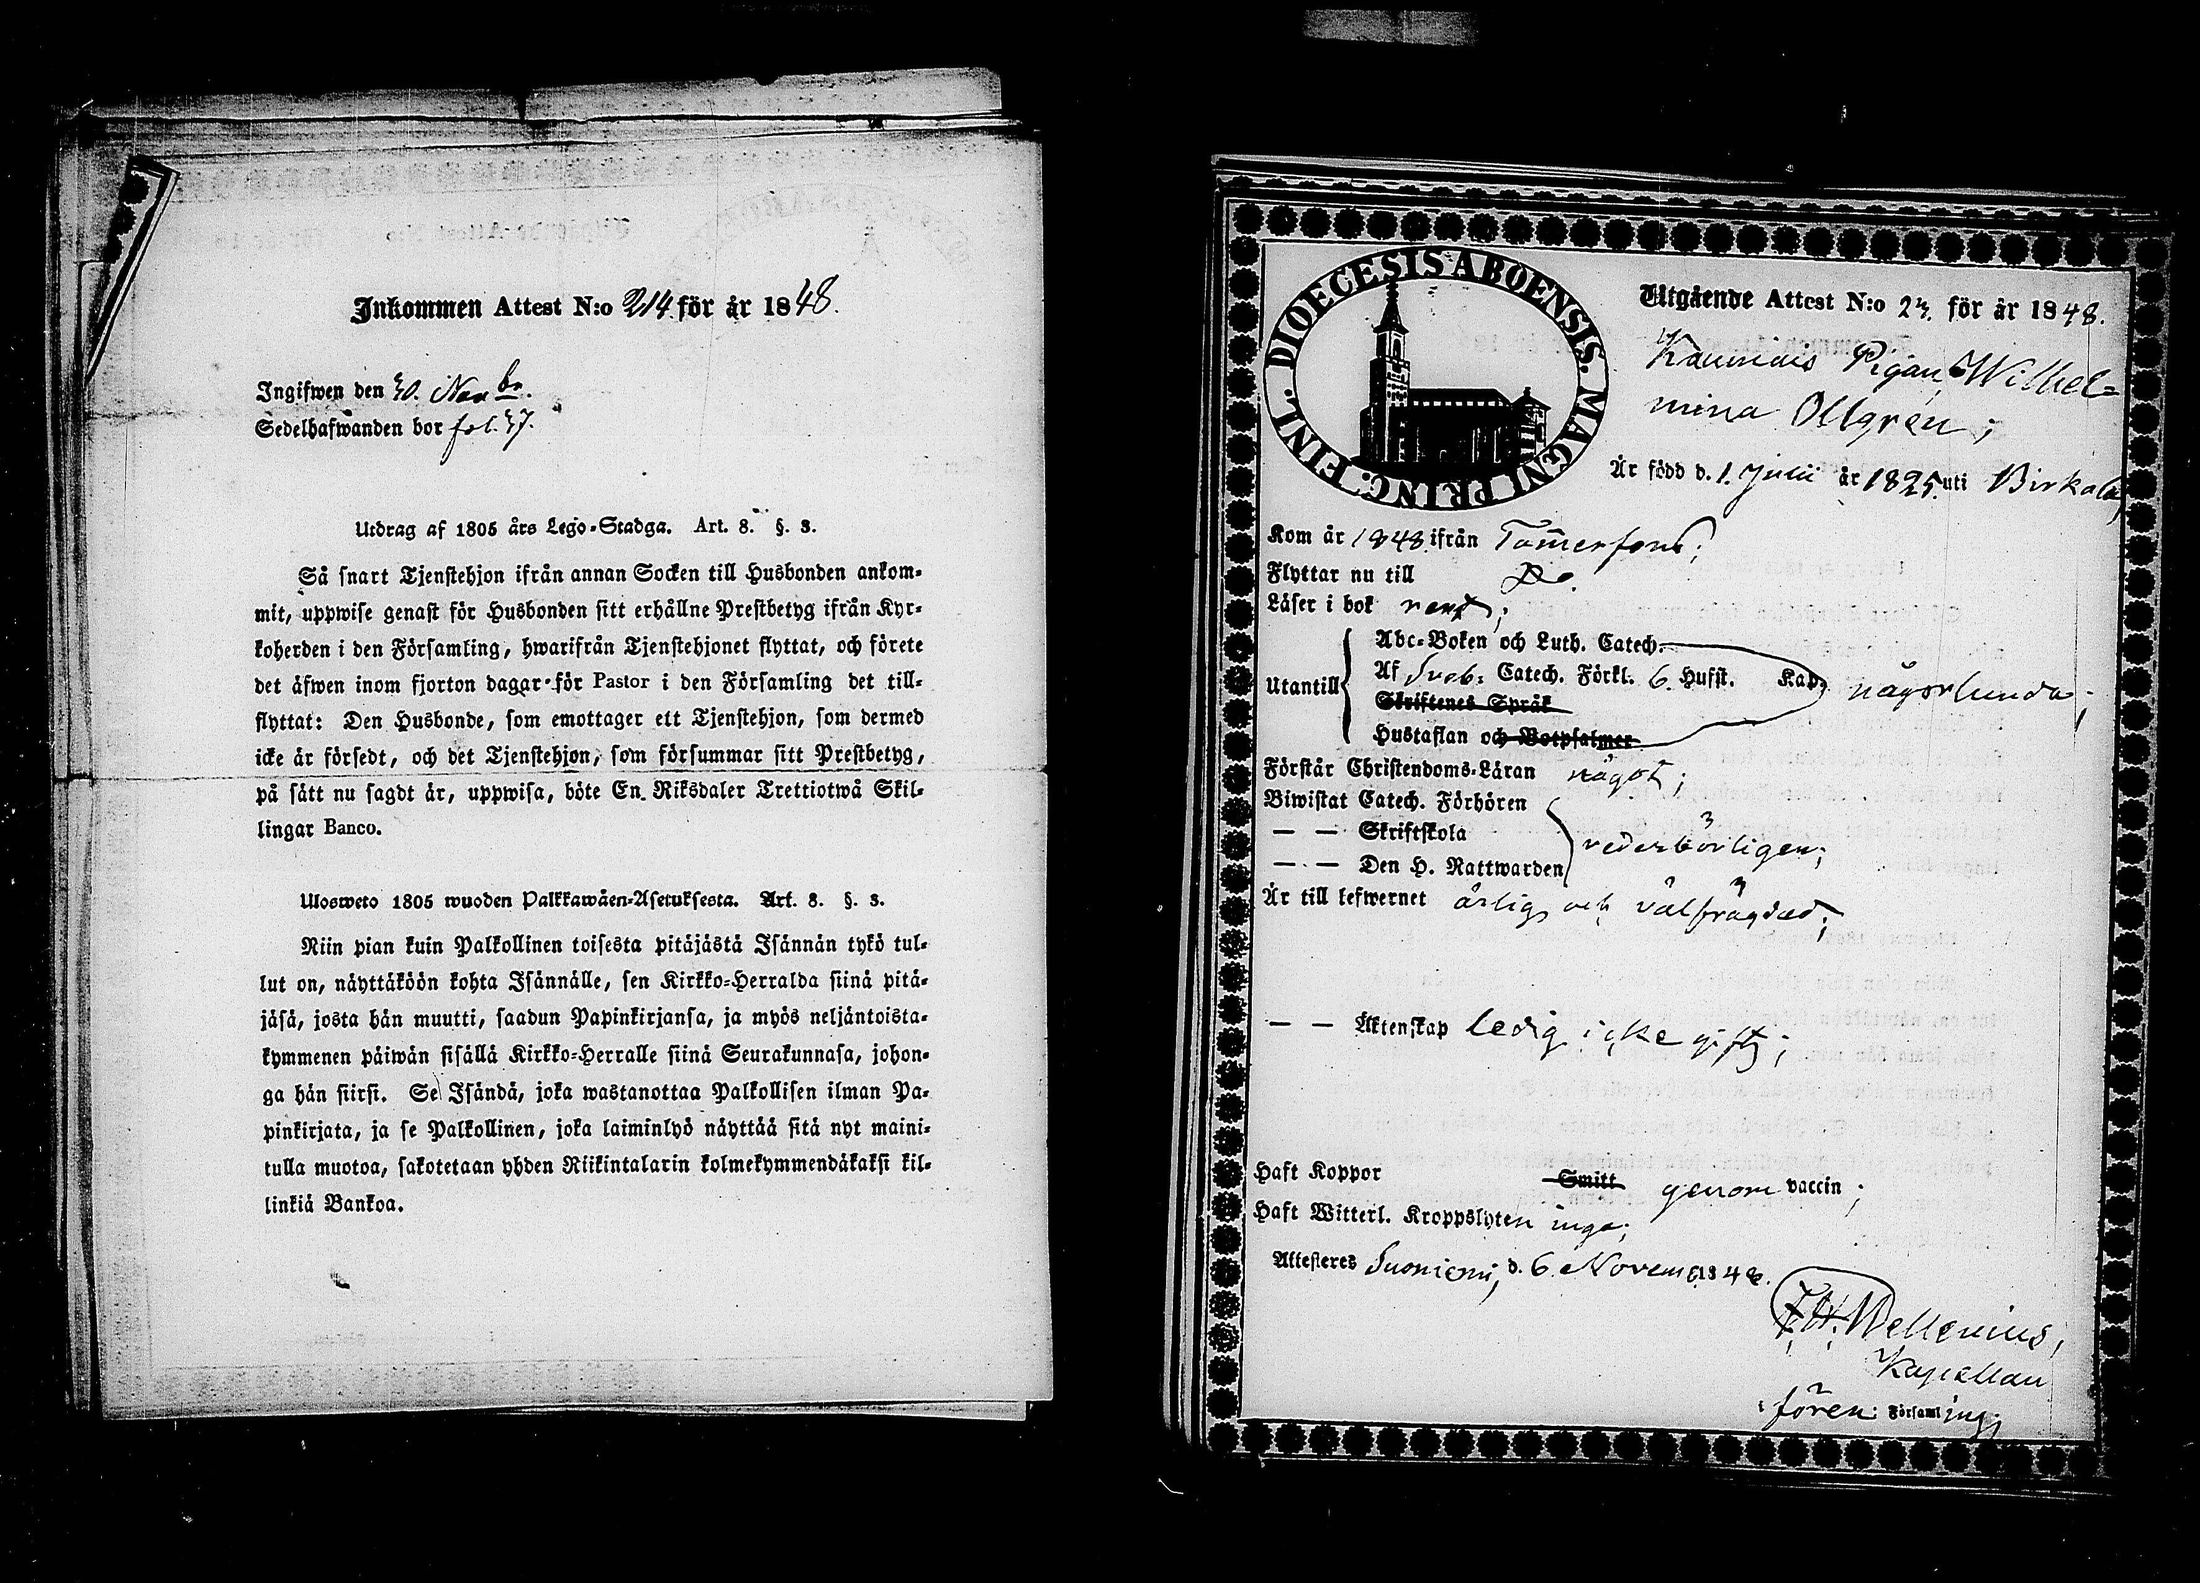 Inkommen Attest N:o 214 för år 1848.
Ingifwen den 30. Novbr.
Sedelhafwanden bor fol. 37.
Utdrag af 1805 års Lego-Stadga. Art. 8. §. 3.
Så snart Tjenstehjon ifrån annan Socken till Husbonden ankom-
mit, uppwise genast för Husbonden sitt erhållne Prestbetyg ifrån Kyr-
koherden i den Församling, hwarifrån Tjenstehjonet flyttat, och förete
det äfwen inom fjorton dagar för Pastor i den Församling det till-
flyttat: Den Husbonde, som emottager ett Tjenstehjon, som dermed
icke är försedt, och det Tjenstehjon, som försummar sitt Prestbetyg,
på sätt nu sagdt är, uppwisa, böte En Riksdaler Trettiotwå Skil-
lingar Banco.
Ulosweto 1805 wuoden Palkkawäen-Asetuksesta. Art. 8. §. 3.
Niin pian kuin Palkollinen toisesta pitäjästä Isännän tykö tul-
lut on, näyttäköön kohta Isännälle, sen Kirkko-Herralda siinä pitä-
jäsä, josta hän muutti, saadun Papinkirjansa, ja myös neljäntoista-
kymmenen päiwän sisällä Kirkko-Herralle siinä Seurakunnasa, johon-
ga hän siirsi. Se Isändä, joka wastanottaa Palkollisen ilman Pa-
pinkirjata, ja se Palkollinen, joka laiminlyö näyttää sitä nyt maini-
tulla muotoa, sakotetaan yhden Riikintalarin kolmekymmendäkaksi kil-
linkiä Bankoa.
DIOECESIS ABOENSIS. MAGNI PRINC. FINL.
Utgående Attest N:o 23. för år 1848.
Pigan Wilhel-
mina Ollgrén;
Är född d. 1. Julii år 1825. uti Birkala,
Kom år 1848 ifrån Tammerfors;
Flyttar nu till Do.
Läser i bok rent;
Abc-Boken och Luth. Catech.
Utantill Af Sveb. Catech. Förkl. 6. Hufst. Kap. någorlunda;
Skriftenes Språk
Hustaflan och Botpsalmer
Förstår Christendoms-Läran något;
Biwistat Catech. Förhören
— — Skriftskola vederbörligen;
— — Den H. Nattwarden
Är till lefwernet ärlig och välfrägdad;
— — Äktenskap ledig icke gift;
Haft Koppor Smitt genom vaccin;
Haft Witterl. Kroppslyten inga;
Attesteres Suoniemi, d. 6. Novem. 1848.
F. H. Wellenius,
Kapellan
före n: Församling;